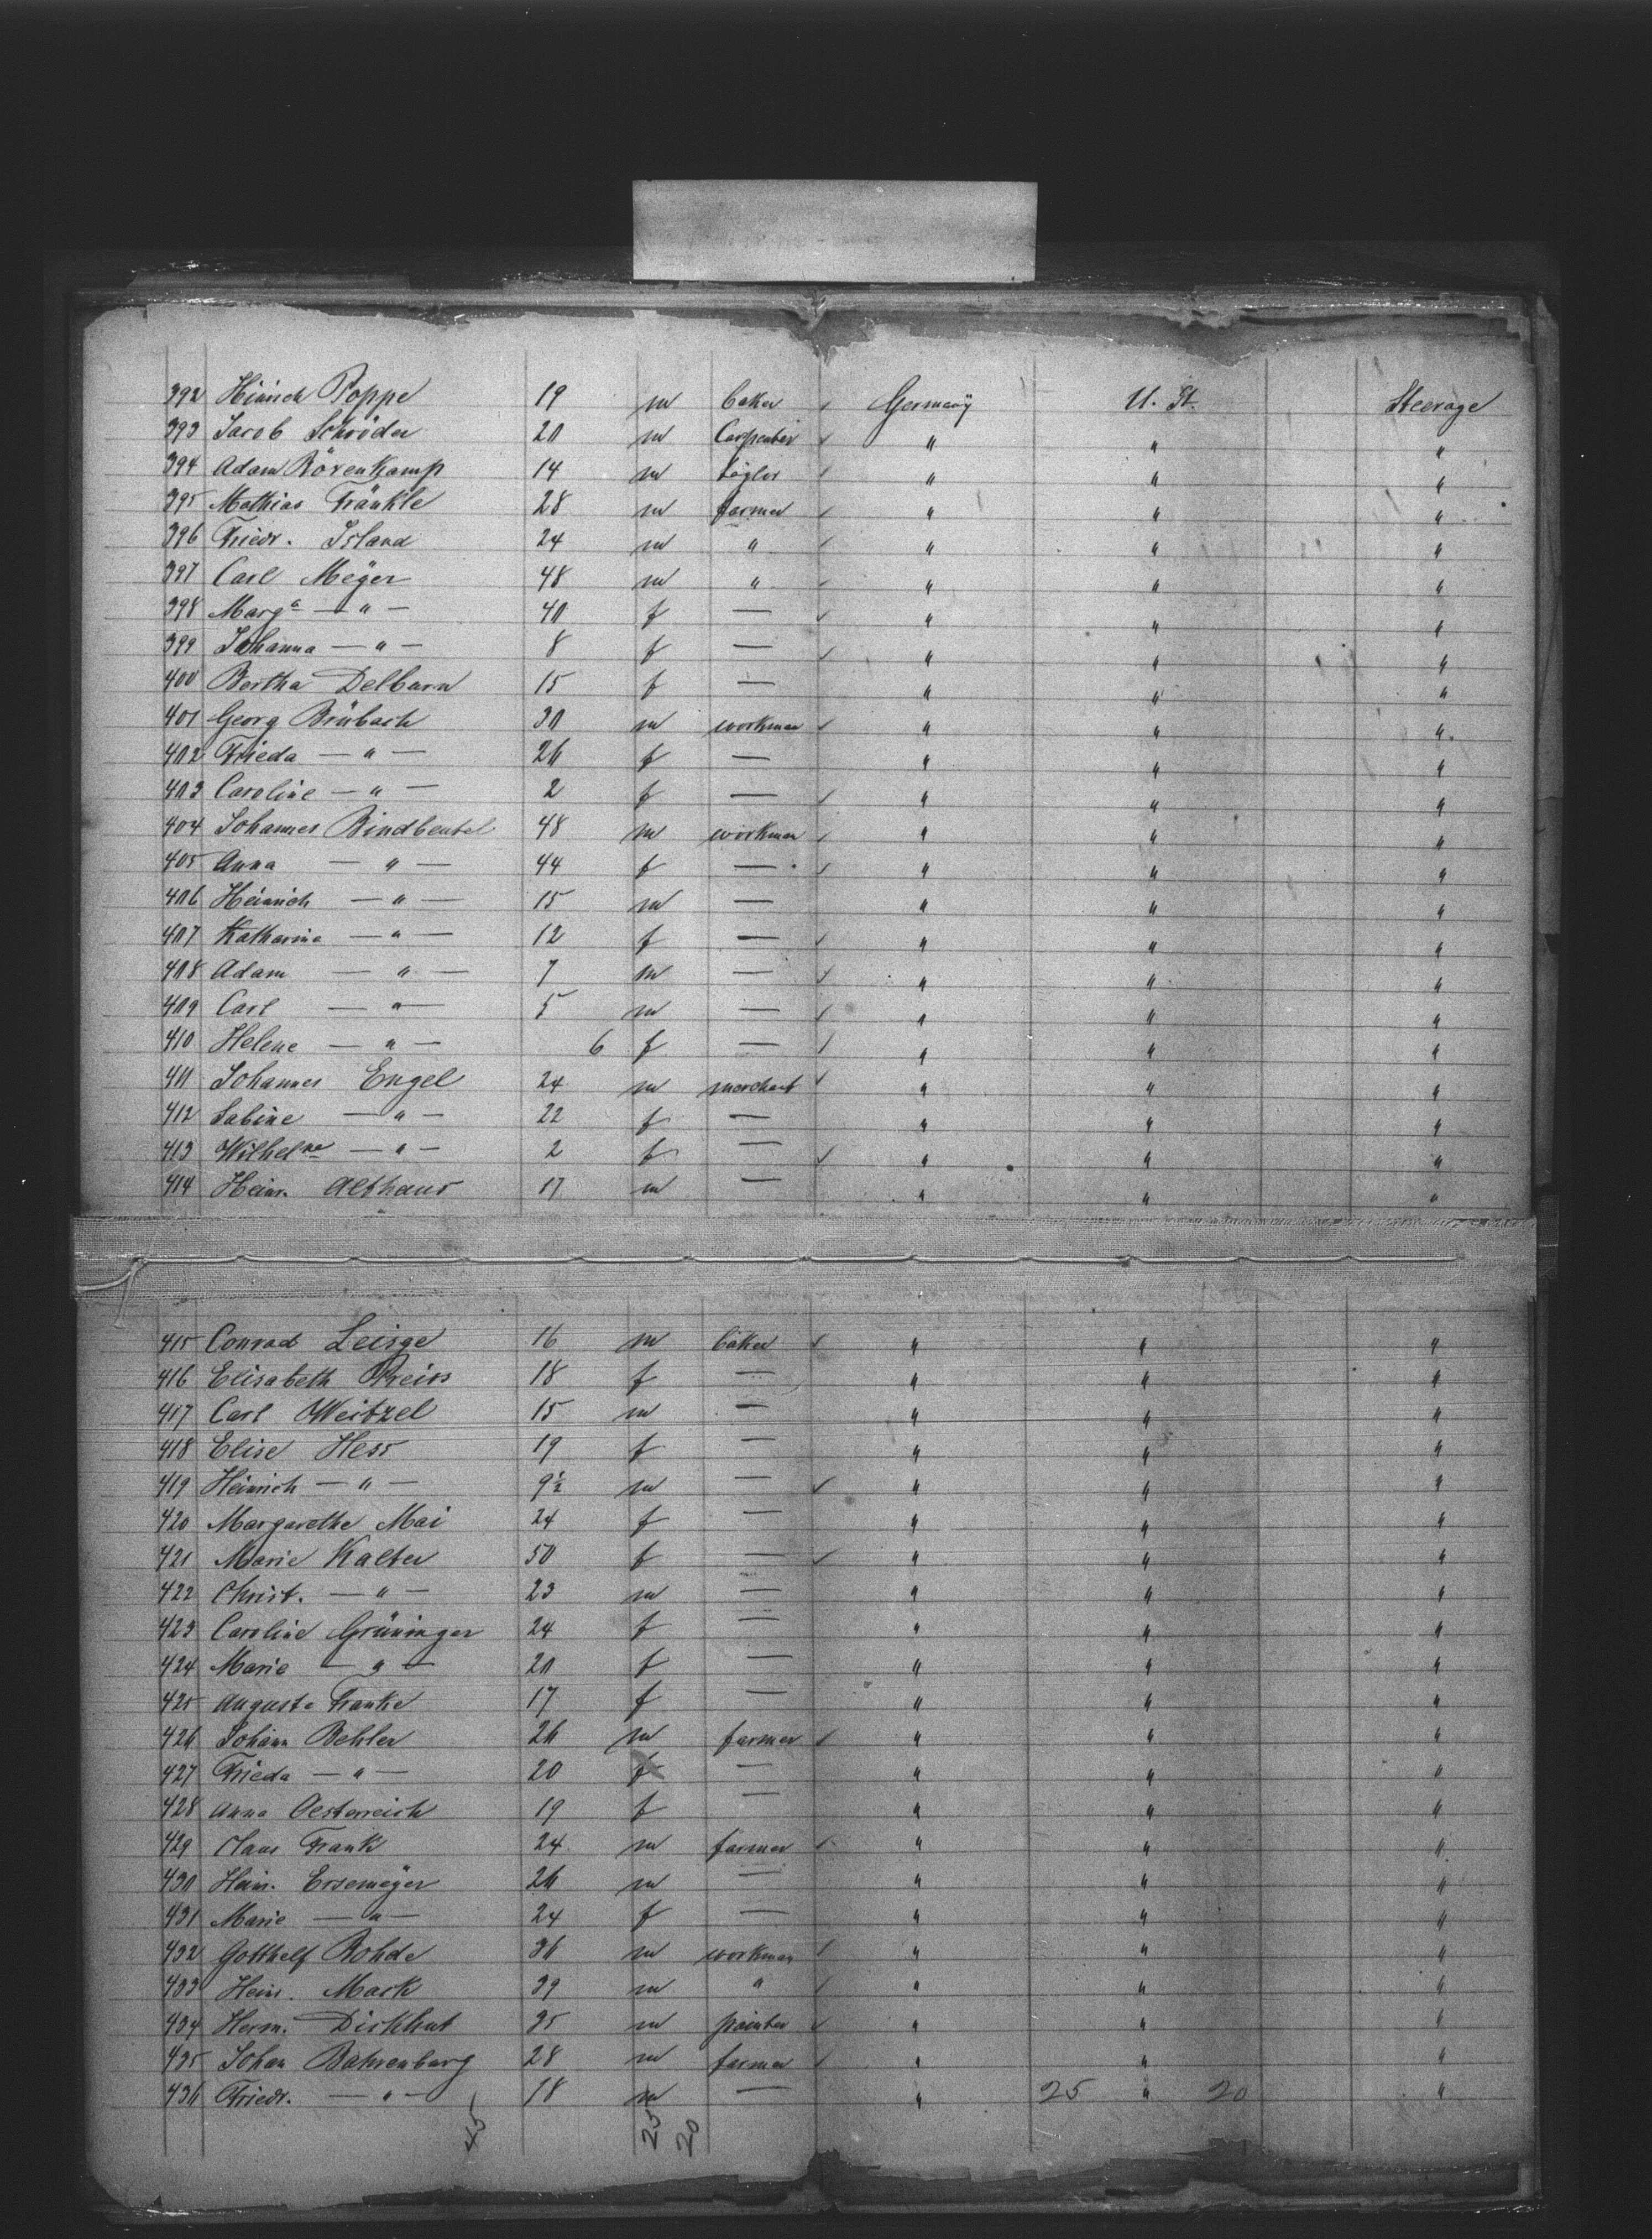 392 Hinrich Poppe 19 m baker ✓ Germany U. St. Steerage
393 Jacob Schröder 20 m Carpenter ✓ " " "
394 Adam Rövenkamp 14 m taylor ✓ " " "
395 Mathias Fränkle 28 m farmer ✓ " " "
396 Friedr. Island 24 m " ✓ " " "
397 Carl Meÿer 48 m " ✓ " " "
398 Marga — " — 40 f — ✓ " " "
399 Johanna — " — 8 f — ✓ " " "
400 Bertha Delbarn 15 f — " " "
401 Georg Brübach 30 m workman ✓ " " "
402 Frieda — " — 26 f — " " "
403 Caroline — " — 2 f — ✓ " " "
404 Johannes Bindbeutel 48 m workman ✓ " " "
405 Anna — " — 44 f — ✓ " " "
406 Heinrich — " — 15 m — " " "
407 Katharina — " — 12 f — ✓ " " "
408 Adam — " — 7 m — ✓ " " "
409 Carl — " — 5 m — ✓ " " "
410 Helene — " — 6 f — ✓ " " "
411 Johannes Engel 24 m merchant ✓ " " "
412 Sabine — " — 22 f — " " "
413 Wilhelne — " — 2 f — ✓ " " "
414 Heinr. Althaus 17 m — " " "
415 Conrad Leisge 16 m baker ✓ " " "
416 Elisabeth Preiss 18 f — " " "
417 Carl Weitzel 15 m — " " "
418 Elise Hess 19 f — " " "
419 Heinrich — " — 9½ m — ✓ " " "
420 Margarethe Mai 24 f — " " "
421 Marie Kalter 50 f — ✓ " " "
422 Christ. — " — 23 m — " " "
423 Caroline Grüninger 24 f — " " "
424 Marie — " — 20 f — " " "
425 Auguste Franke 17 f — " " "
426 Johann Behler 26 m farmer ✓ " " "
427 Frieda — " — 20 f — " " "
428 Anna Oesterreich 19 f — " " "
429 Claas Frank 24 m farmer ✓ " " "
430 Heinr. Ersemeÿer 26 m — " " "
431 Marie — " — 24 f — " " "
432 Gotthelf Rohde 36 m workman ✓ " " "
433 Heinr. Mark 39 m " ✓ " " "
434 Herm. Dickhut 35 m painter ✓ " " "
435 Johan Bahrenburg 28 m farmer ✓ " " "
436 Friedr. — " — 18 m — " 25 " 20 "
45 25 20